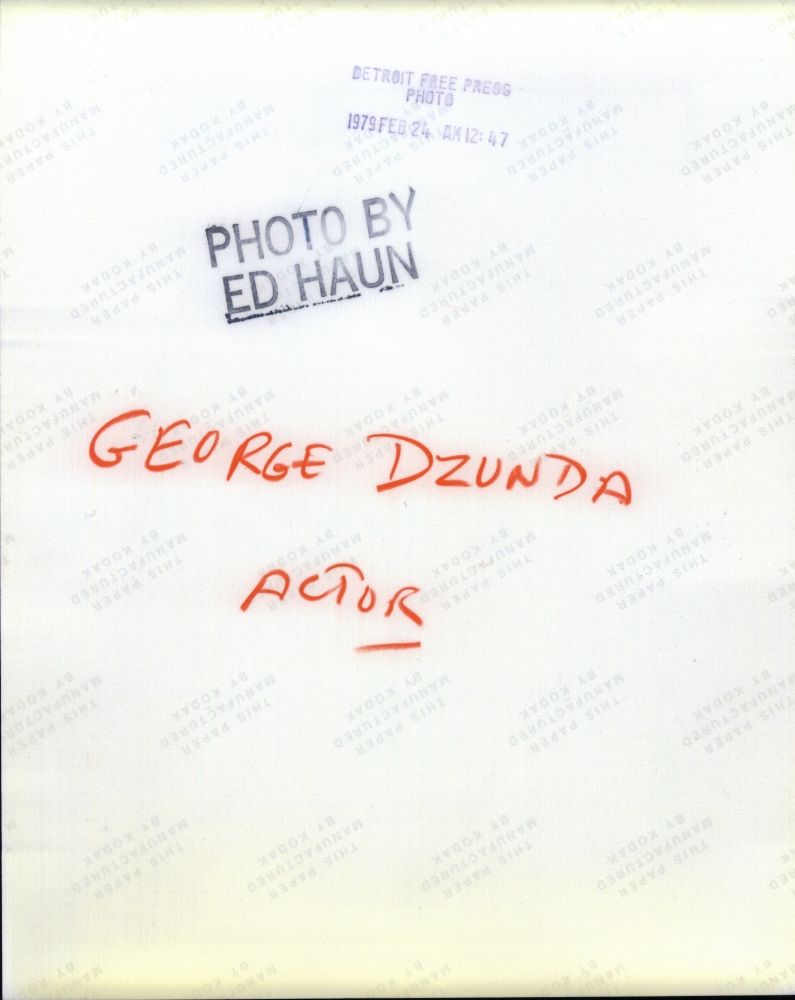 DETROIT FREE PRESS
PHOTO
1979 FEB 24 AM 12:47
PHOTO BY
ED HAUN
GEORGE DZUNDA
ACTOR
THIS PAPER
MANUFACTURED
BY KODAK